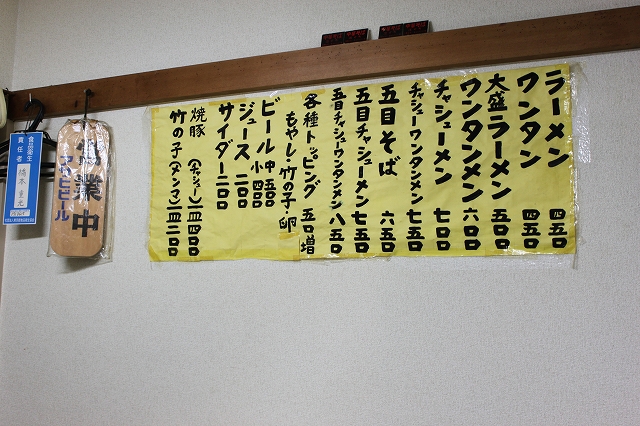 ラーメン 四五〇
ワンタン 四五〇
大盛ラーメン 五〇〇
ワンタンメン 六〇〇
チャシューメン 七〇〇
チャシューワンタンメン 七五〇
五目そば 六五〇
五目チャシューメン 七五〇
五目チャシューワンタンメン 八五〇
各種トッピング 五〇増
もやし・竹の子・卵
ビール 中 五〇〇
小 四〇〇
ジュース 二〇〇
サイダー 二〇〇
焼豚 (チャシュー) 一コ 四〇〇
竹の子 (メンマ) 一コ 二〇〇
営業中
アサヒビール
食品衛生
責任者